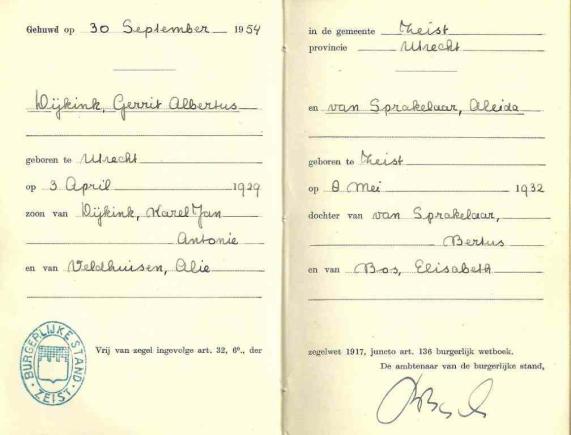 Gehuwd op 30 September 1954
Wijkink, Gerrit Albertus
geboren te Utrecht
op 3 April 1929
zoon van Wijkink, Karel Jan
Antonie
en van Veldhuisen, Alie
BURGERLIJKE STAND
ZEIST
Vrij van zegel ingevolge art. 32, 6º., der
in de gemeente Zeist
provincie Utrecht
en van Sprakelaar, Aleida
geboren te Zeist
op 8 Mei 1932
dochter van van Sprakelaar,
Bertus
en van Bos, Elisabeth
zegelwet 1917, juncto art. 136 burgerlijk wetboek.
De ambtenaar van de burgerlijke stand,